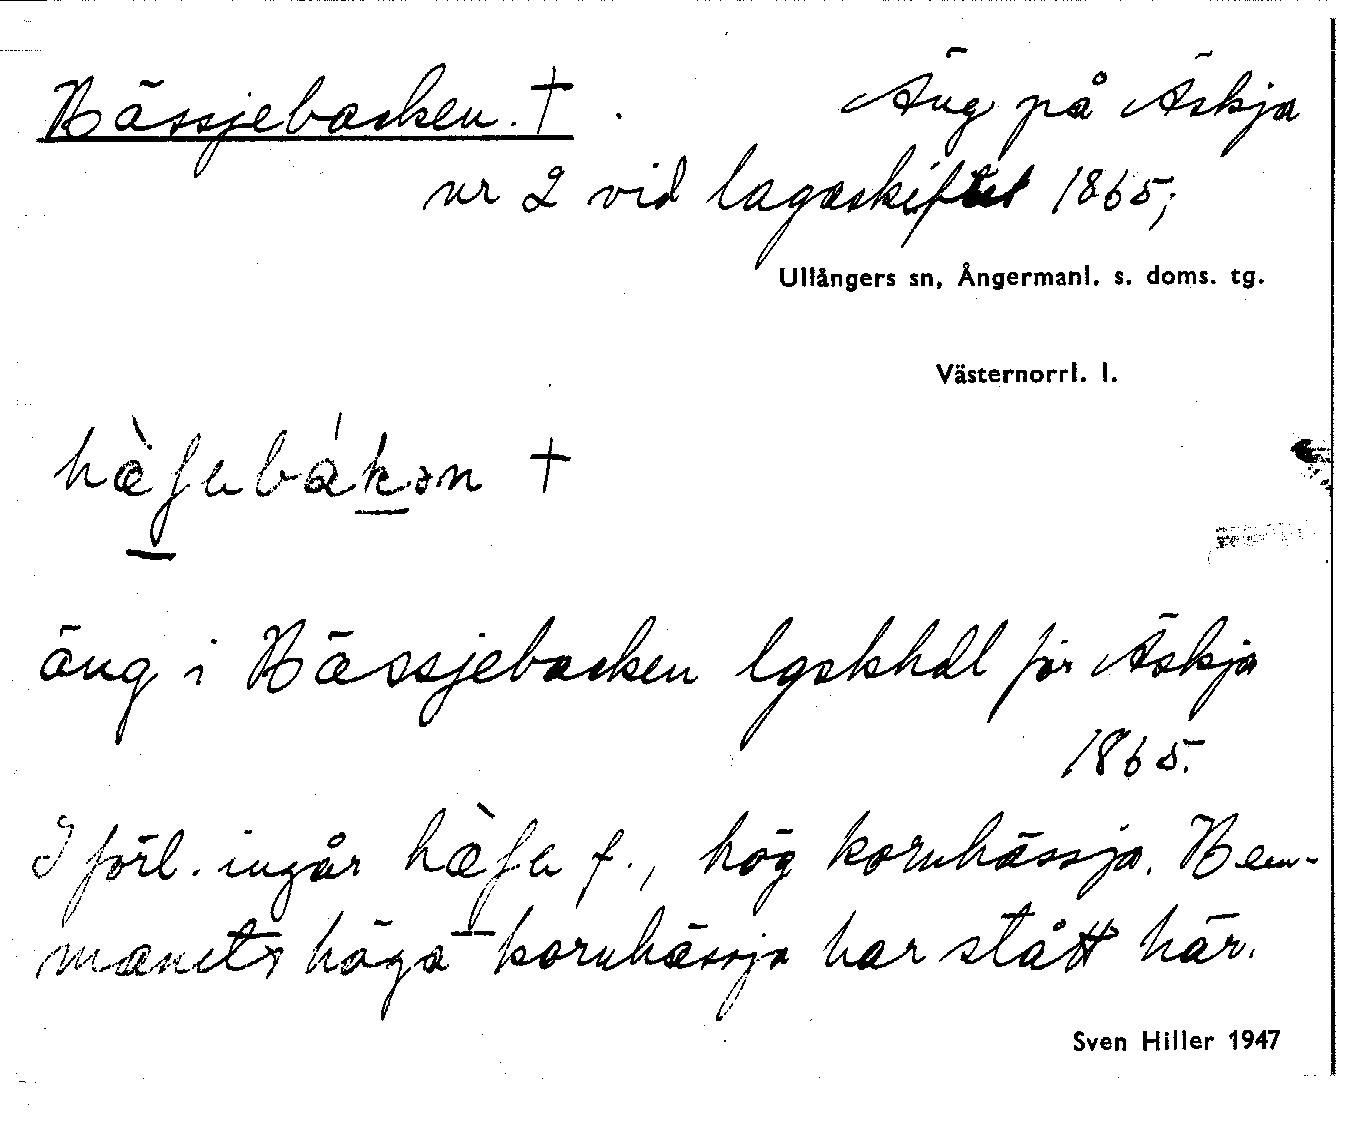 Hässjebacken. †. Äng på Äskja
nr 2 vid lagaskiftet 1865;
Ullångers sn, Ångermanl. s. doms. tg.
Västernorrl. l.
hæ̀ʃubákən †
äng i Hässjebacken lgskhdl för Äskja
1865.
I förl. ingår hæ̀ʃu f., hög kornhässja. Hem-
manets höga kornhässja har stått här.
Sven Hiller 1947